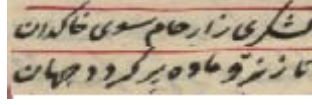 لشکری زارحام سوی خاکدان
تا ز نر و ماده پر گردد جهان